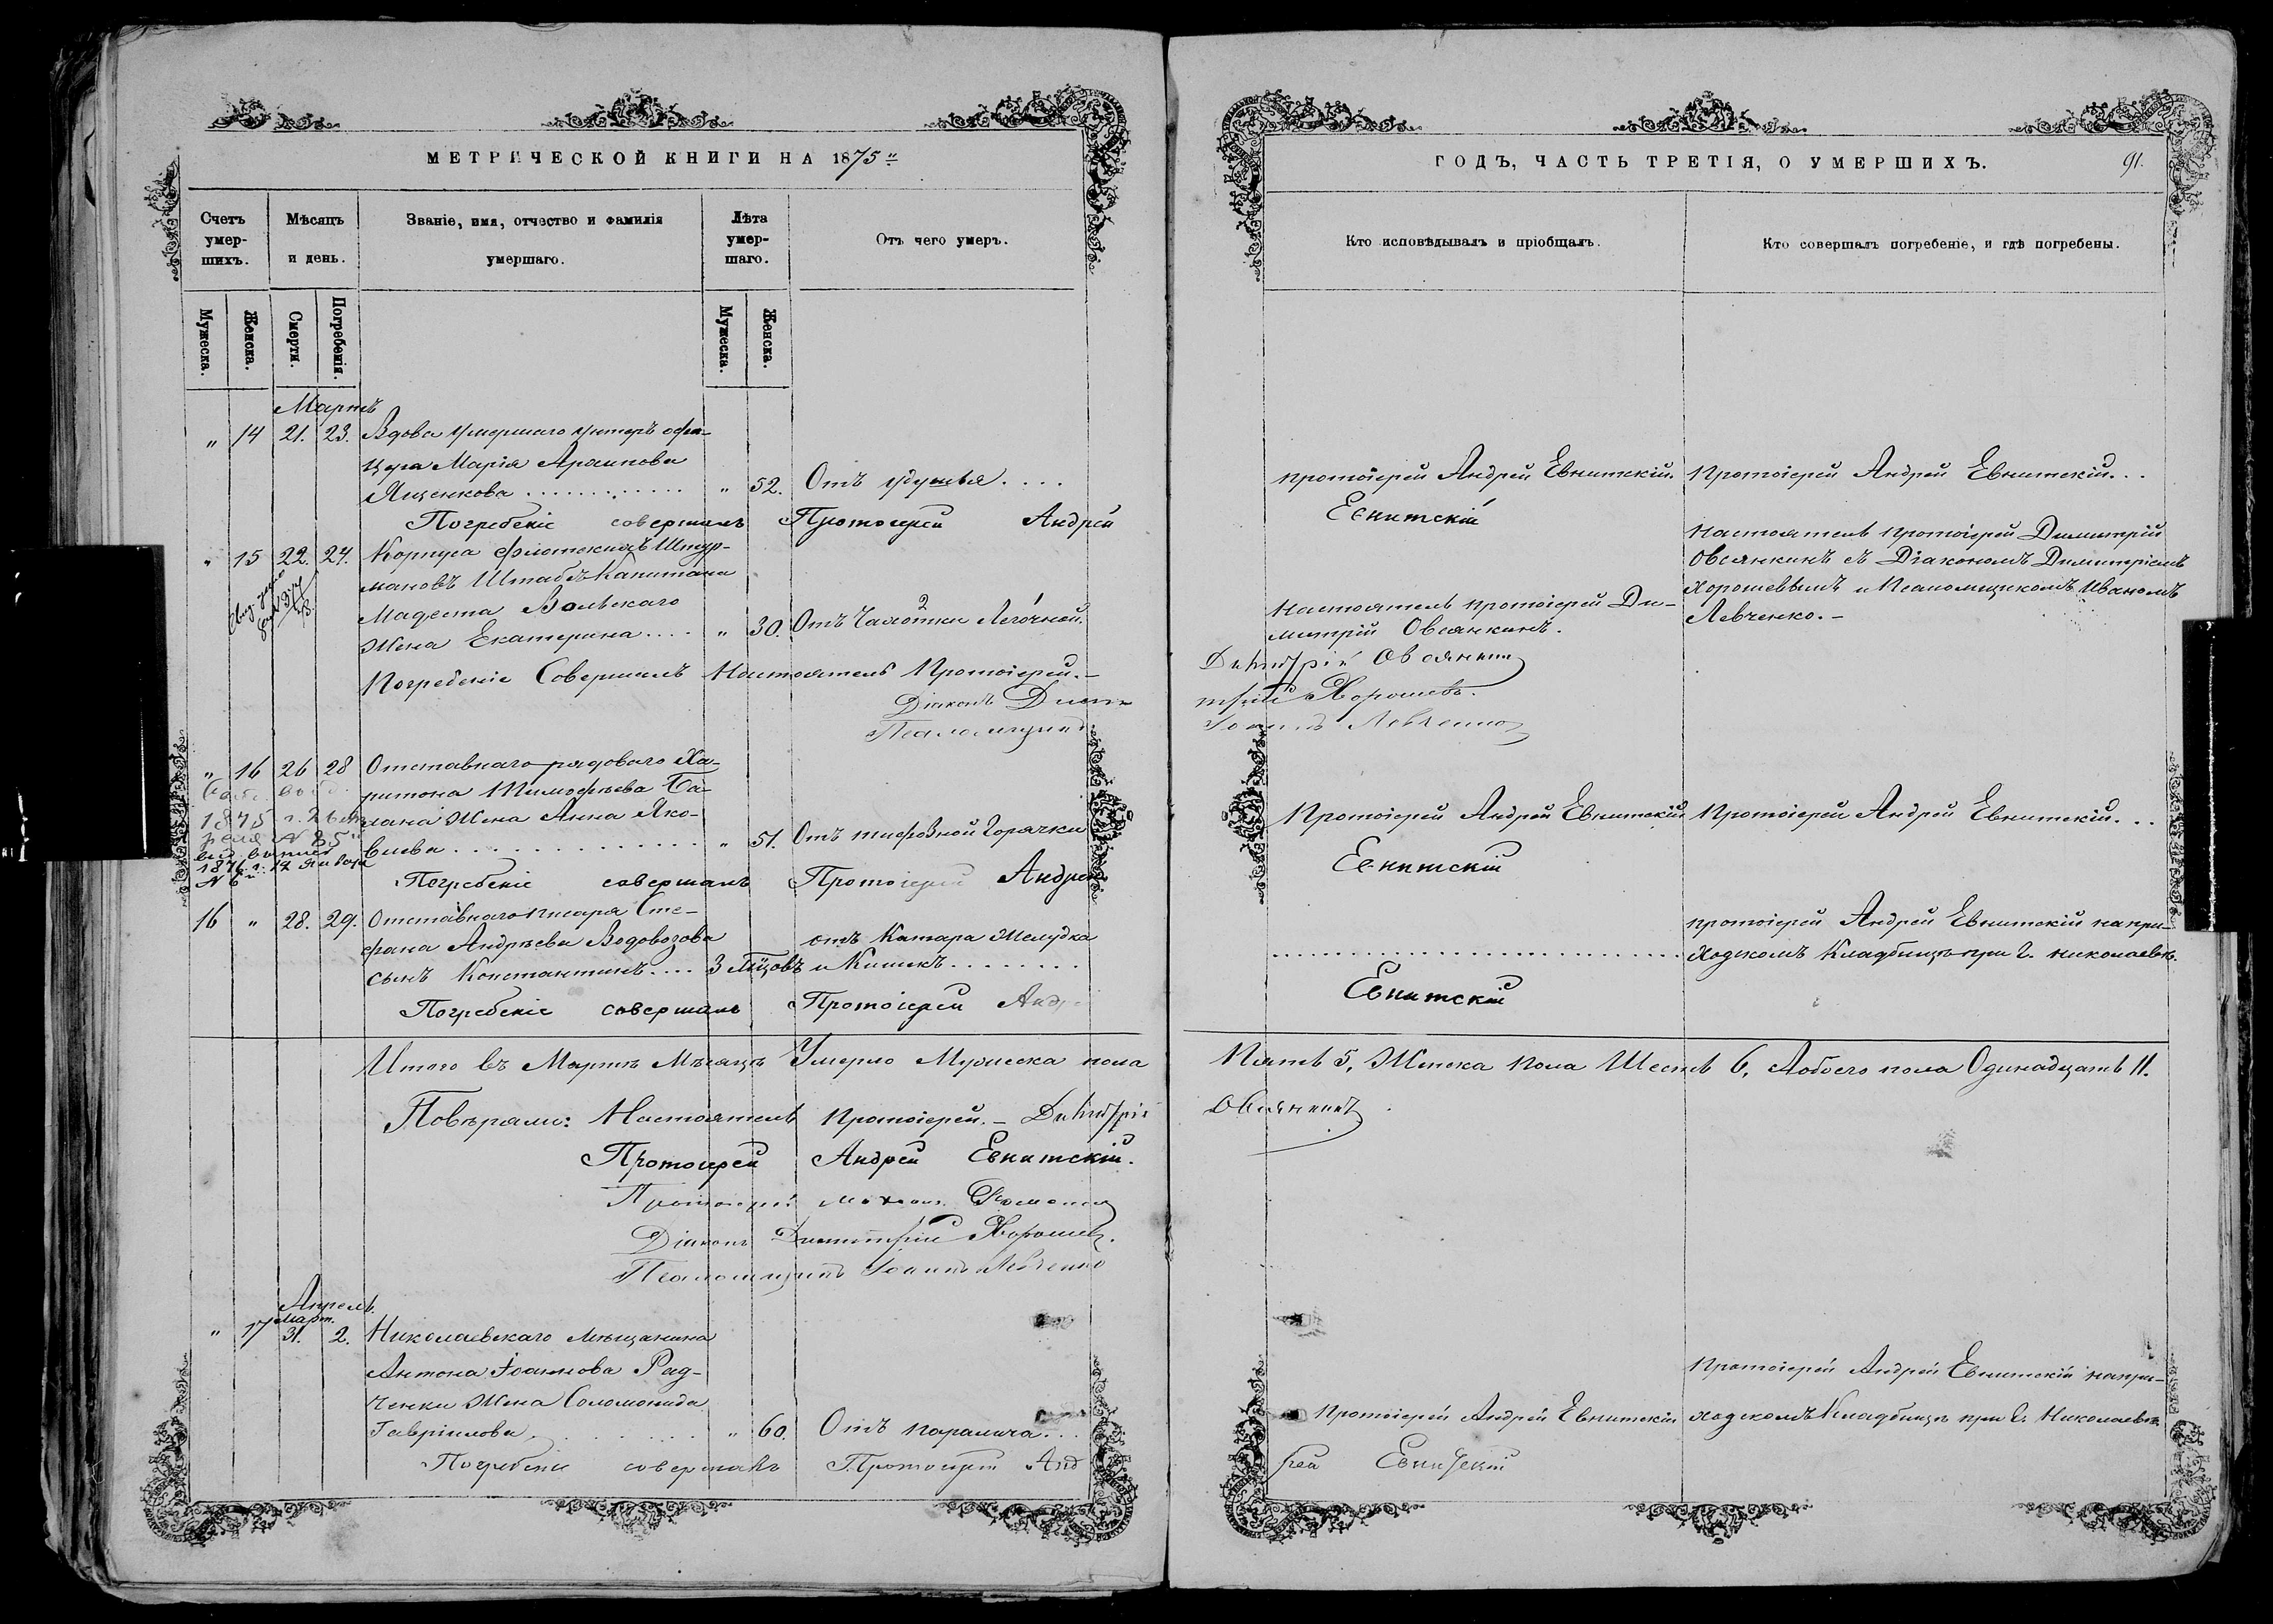 МЕТРИЧЕСКОЙ КНИГИ НА 1875
Счетъ умер-шихъ.
Мѣсяцъ и день.
Званіе, имя, отчество и фамилія умершаго.
Лѣта умер-шаго.
Отъ чего умеръ.
Мужеска.
Женска.
Смерти.
Погребенія.
Мужеска.
Женска.
Мартъ
" 14 21. 23. Вдова умершаго унтеръ офи-
цера Марія Архипова
Ященкова " 52. Отъ удушья
Погребеніе совершалъ Протоіерей Андрей
" 15 22. 24. Корпуса флотскихъ Штур-
мановъ Штабсъ Капитана
Модеста Вольскаго
Жена Екатерина " 30. Отъ Чахотки Легочной.
Погребеніе Совершалъ Настоятель Протоіерей.
Діаконъ Дими
Псаломщикъ
" 16 26 28 Отставнаго рядоваго Ха-
ритона Тимофѣева
Жена Анна Яко-
влева " 51. Отъ тифозной Горячки
1875 г. 26
1876 г. 12 Января
N 6
Погребеніе совершалъ Протоіерей Андрей
16 " 28. 29. Отставнаго писаря Сте-
фана Андрѣева Водовозова отъ Катара Желудка
сынъ Константинъ 3 Мѣсяцовъ и Кишекъ
Погребеніе совершалъ Протоіерей Анд
Итого въ Мартѣ Мѣсяцѣ Умерло Мужеска пола
Повѣряли: Настоятель Протоіерей. Димитрій
Протоіерей Андрей Евнитскій.
Протоіерей
Діаконъ Димитрій Хорошев.
Псаломщикъ Іоаннъ Левченко
Апрель.
Март.
" 17 31. 2. Николаевскаго мѣщанина
Антона Іоаннова Рад-
ченки Жена Соломонида
Гавріилова " 60. Отъ паралича
Погребеніе совершалъ Протоіерей Анд
ГОДЪ, ЧАСТЬ ТРЕТІЯ, О УМЕРШИХЪ.
91.
Кто исповѣдывалъ и пріобщалъ.
Кто совершалъ погребеніе, и гдѣ погребены.
протоіерей Андрей Евнитскій. Протоіерей Андрей Евнитскій
Евнитскій
Настоятель протоіерей Димитрій
Овсянкинъ съ Діакономъ Димитріемъ
Хорошевымъ и Псаломщикомъ Иваномъ
Левченко.
Настоятель протоіерей Ди-
митрій Овсянкинъ.
Димитрій Овсянкин
трій Хорошевъ.
Іоаннъ Левченко
Протоіерей Андрей Евнитскій Протоіерей Андрей Евнитскій
Евнитскій
протоіерей Андрей Евнитскій на при-
ходскомъ Кладбищѣ при г. Николаевѣ.
Евнитскій
Пять 5, Женска пола Шесть 6, А обоего пола Одинадцать 11.
Овсянкинъ
протоіерей Андрей Евнитскій на при-
Протоіерей Андрей Евнитскій ходскомъ Кладбищѣ при г. Николаевѣ.
рей Евнитскій